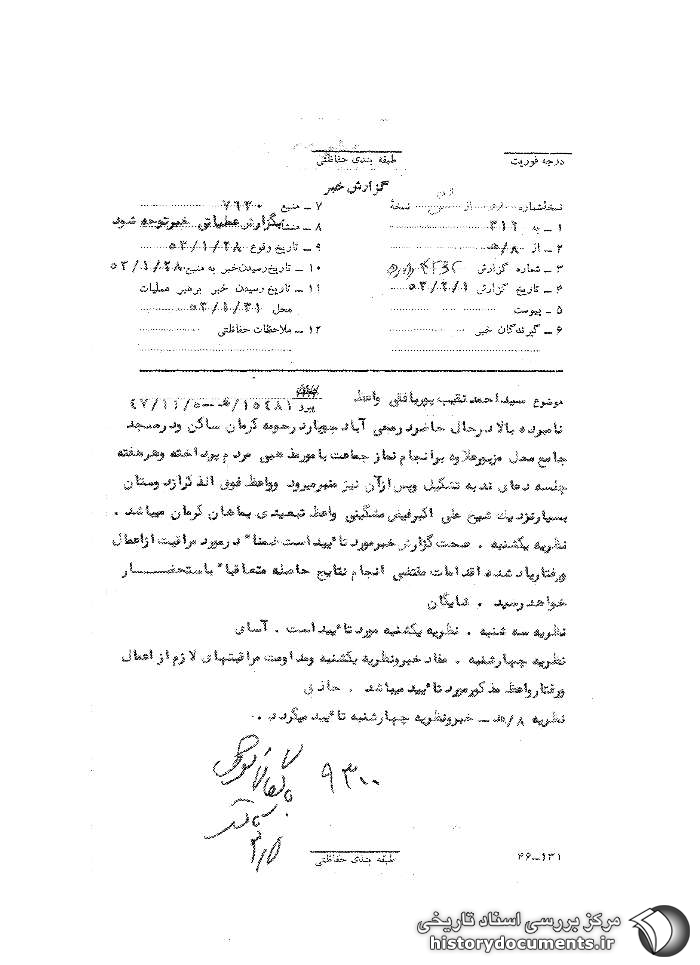 درجه فوریت
طبقه بندی حفاظتی
گزارش خبر
نسخه شماره از نسخهٔ
۱ - به ۳۱۲
۲ - از ۸/ه
۳ - شماره گزارش
۴ - تاریخ گزارش ۵۲/۲/۱
۵ - پیوست
۶ - گیرندگان خبر
۷ - منبع ۷۶۳۰
۸ - منشاء بگزارش عملیاتی خبر توجه شود
۹ - تاریخ وقوع ۵۲/۱/۲۸
۱۰ - تاریخ رسیدن خبر به منبع ۵۲/۱/۲۸
۱۱ - تاریخ رسیدن خبر برهبر عملیات
محل ۵۲/۱/۳۱
۱۲ - ملاحظات حفاظتی
موضوع سید احمد نقیب پور بافقی واعظ
پیرو ۱۵۴۸۱/ه‍ - ۴۷/۱۱/۵
نامبرده بالا در حال حاضر در آباد چوپار در حومه کرمان ساکن و در مسجد
جامع محل مزبور علاوه بر انجام نماز جماعت بامور مذهبی مردم پرداخته و هر هفته
جلسه دعای ندبه تشکیل و پس از آن نیز منبر میرود و واعظ فوق الذکر از دوستان
بسیار نزدیک شیخ علی اکبر فیض مشگینی واعظ تبعیدی بماهان کرمان میباشد .
نظریه یکشنبه . صحت گزارش خبر مورد تائید است ضمنا" در مورد مراقبت از اعمال
و رفتار یاد شده اقدامات مقتضی انجام نتایج حاصله متعاقبا" باستحضار
خواهد رسید . شایگان
نظریه سه شنبه . نظریه یکشنبه مورد تائید است . آسای
نظریه چهارشنبه . مفاد خبر و نظریه یکشنبه و مداومت مراقبتهای لازم از اعمال
و رفتار واعظ مذکور مورد تائید میباشد . حاذق
نظریه ۸/ه‍ - خبر و نظریه چهارشنبه تائید میگردد .
۹۳۰۰
۲/۵
۴۶-۱۳۱
طبقه بندی حفاظتی
مرکز بررسی اسناد تاریخی
historydocuments.ir